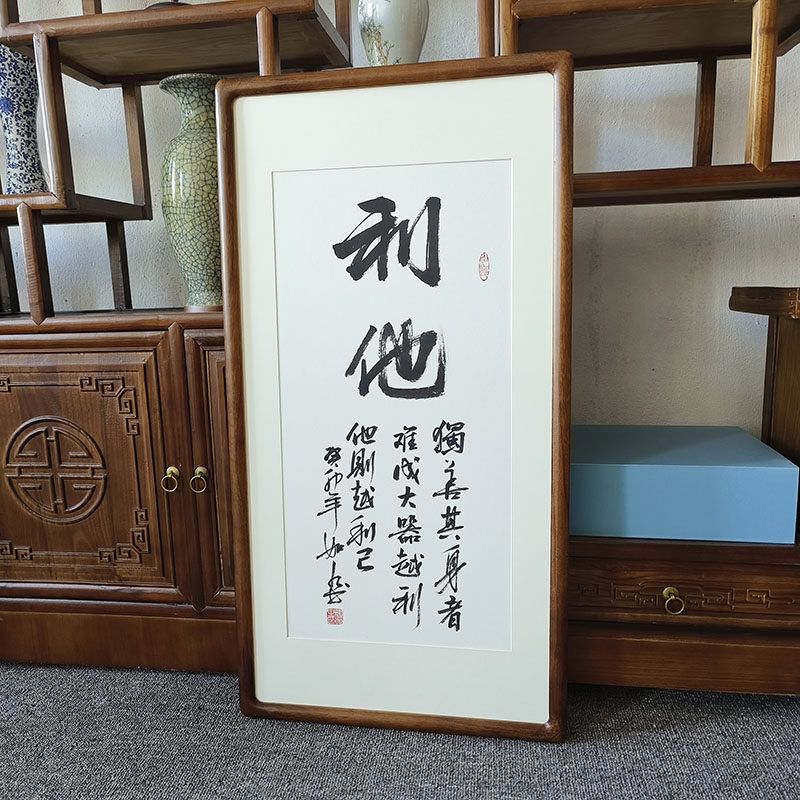 利
他
獨善其身者
难成大器越利
他則越利己
癸卯年如